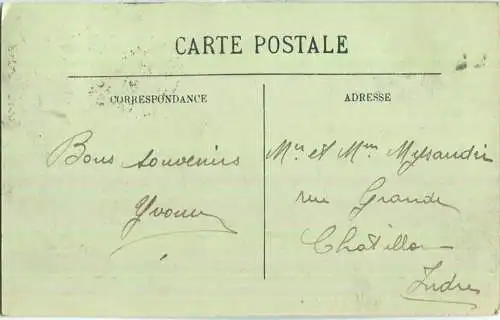 CARTE POSTALE
CORRESPONDANCE
ADRESSE
Bons souvenirs
Yvonne
Mr et Mme Mysaudin
rue Grande
Châtillon
Indre